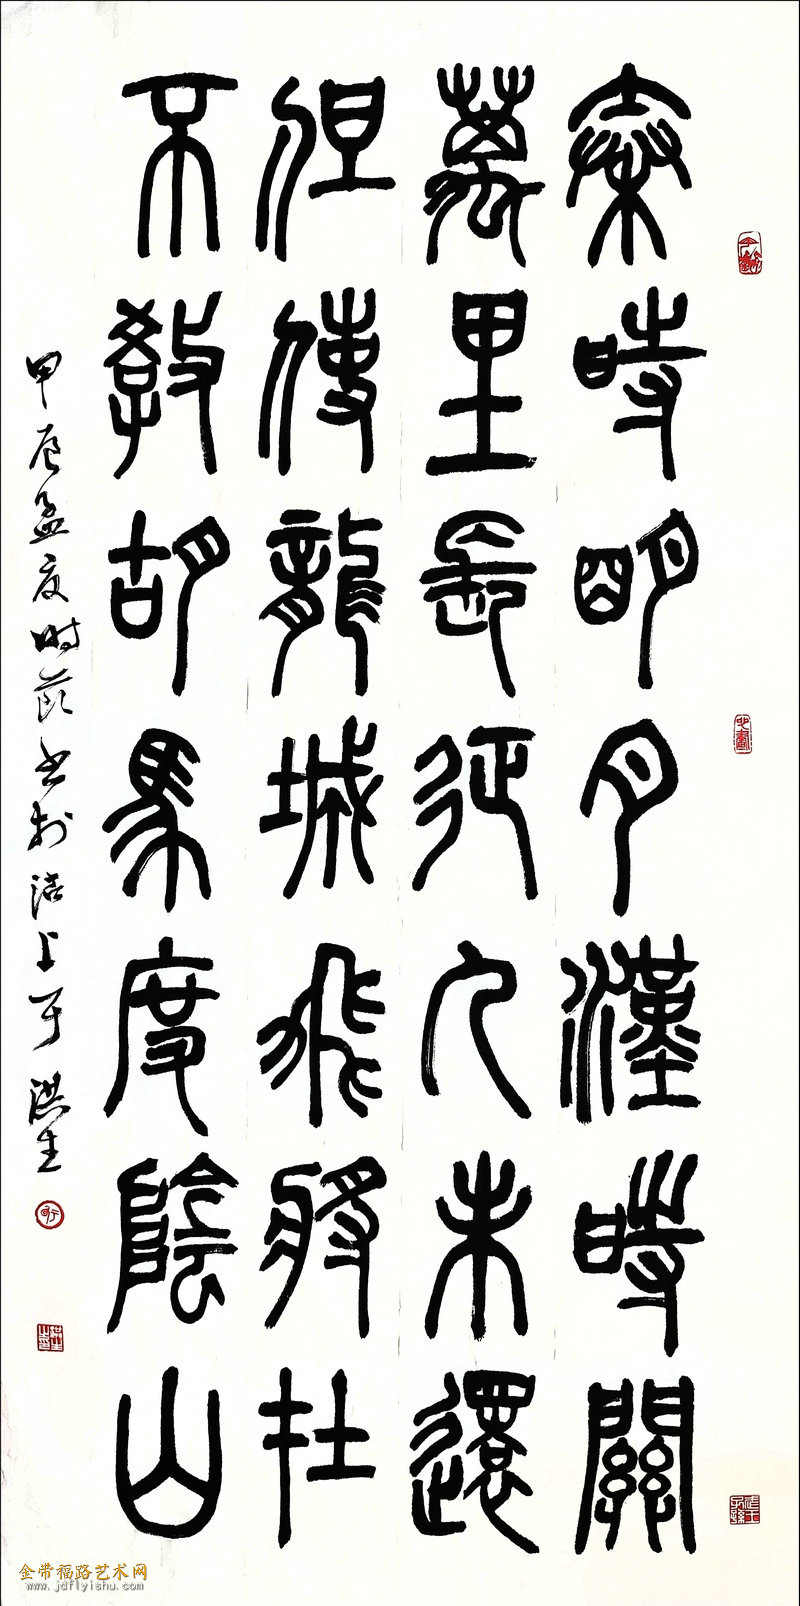 秦時明月漢時關
萬里長征人未還
但使龍城飛將在
不教胡馬度陰山
甲辰孟夏時書於上洪生
金带福路艺术网
www.jdflyishu.com